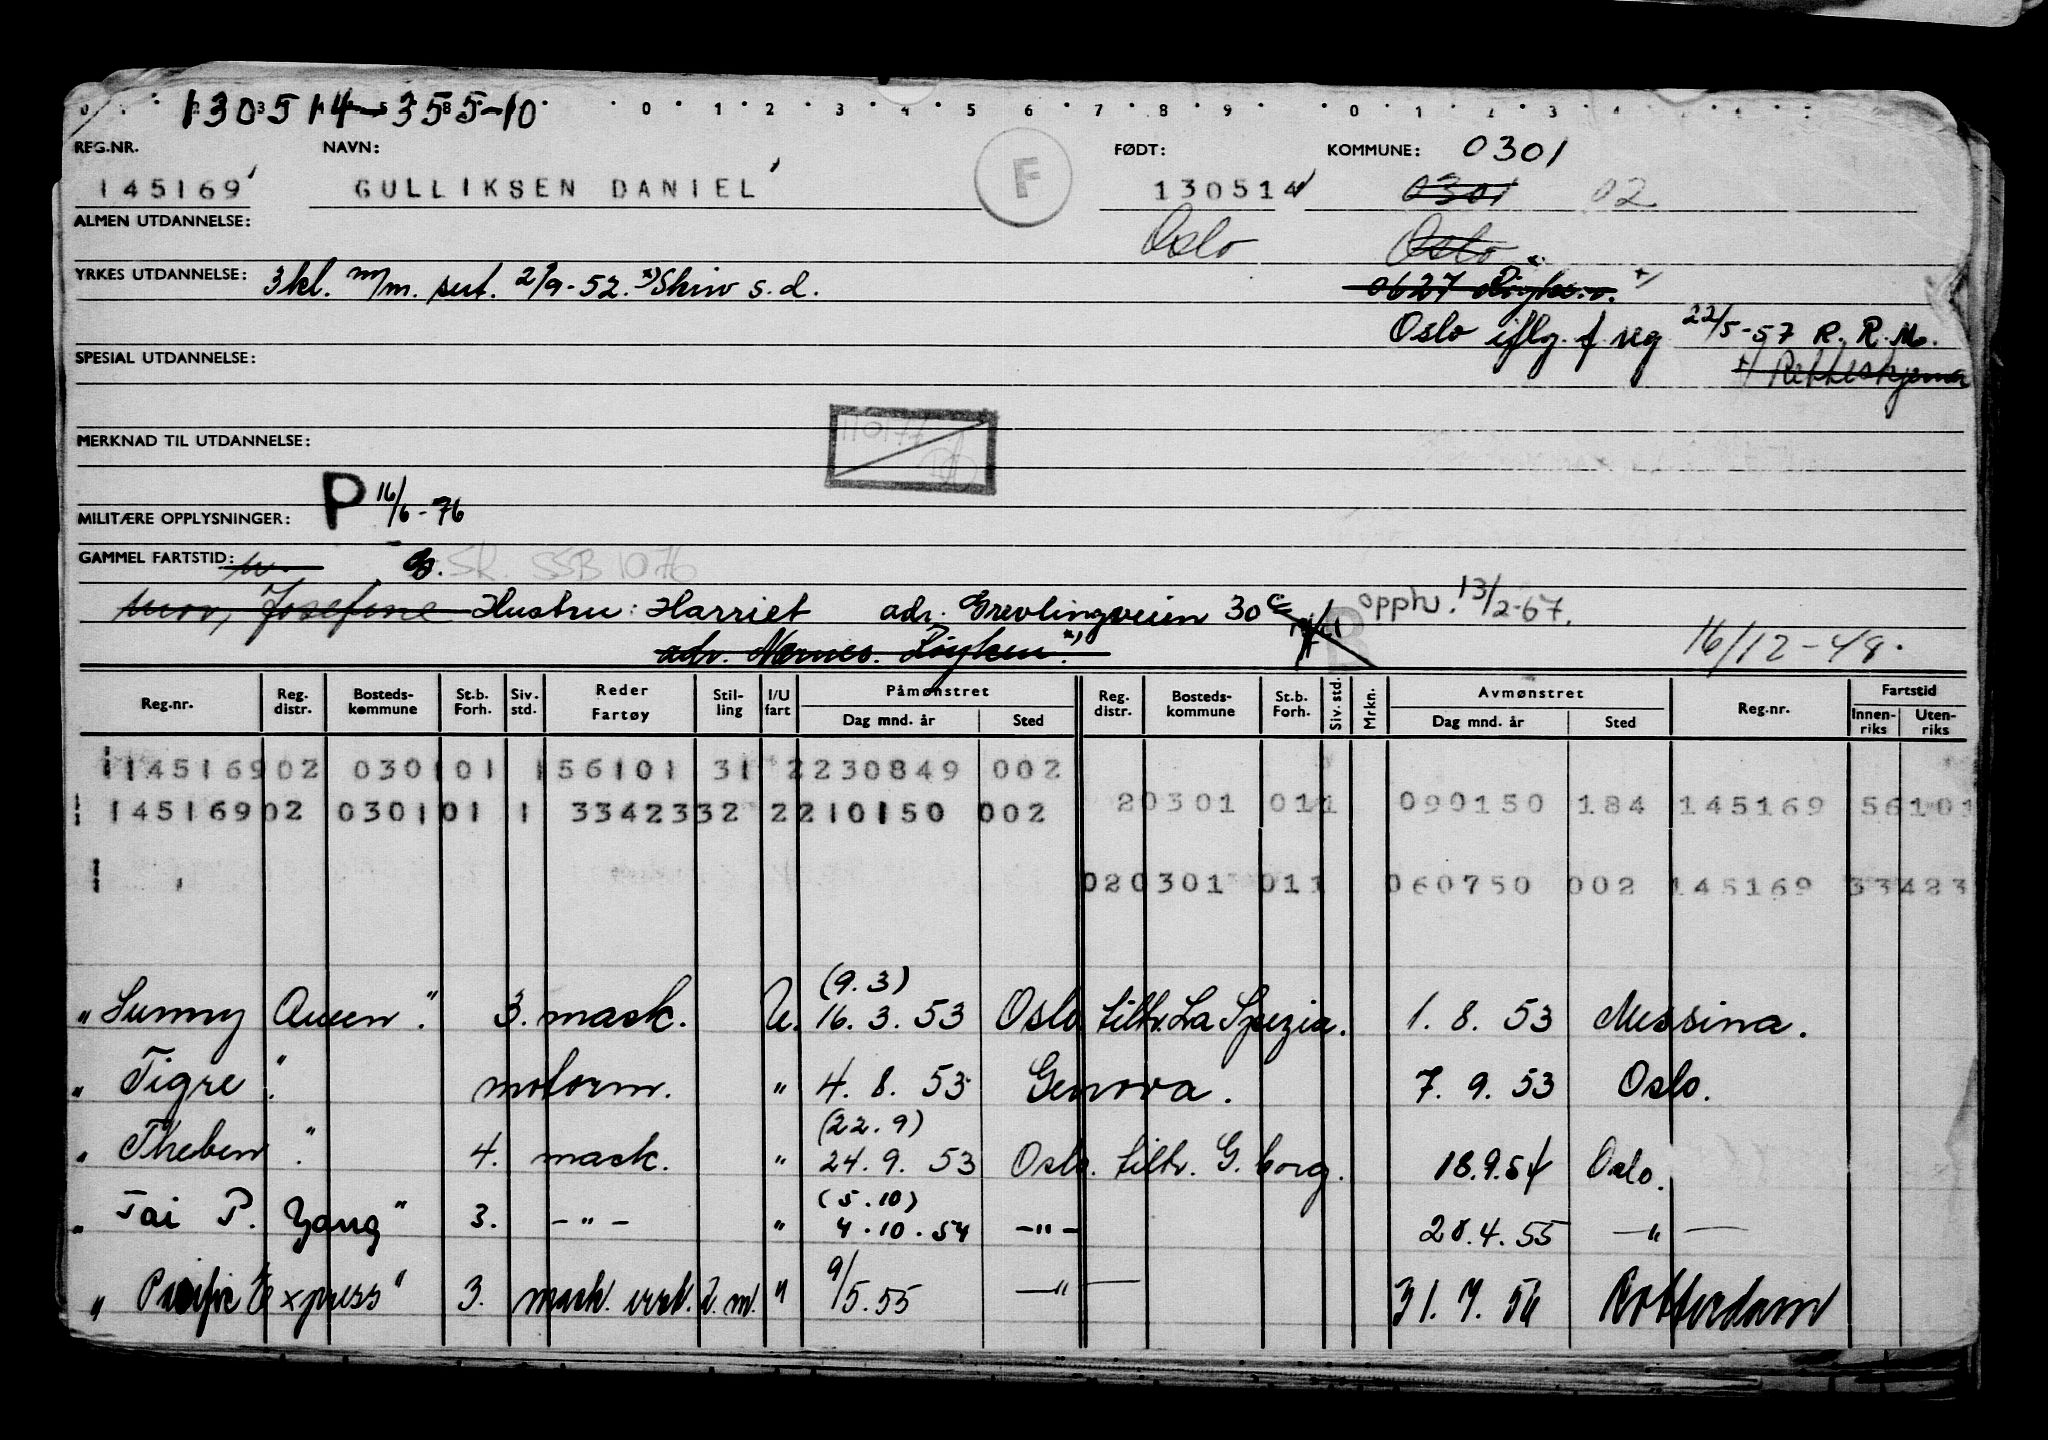 130514-35510
0 1 2 3 4 5 6 7 8 9 0 1 2 3
REG.NR. NAVN: F FØDT: KOMMUNE: 0301
145169 GULLIKSEN DANIEL 130514 0301 02
ALMEN UTDANNELSE: Oslo Oslo
YRKES UTDANNELSE: 3 kl. m/m. sert. 2/9-52. x) Skiv s.d. 0627 Røyken. x)
Oslo iflg. f. reg 22/5-57 R.R.M.
SPESIAL UTDANNELSE: Retteskjema
MERKNAD TIL UTDANNELSE: 110177
MILITÆRE OPPLYSNINGER: P 16/6-76
GAMMEL FARTSTID: SR. SSB 1076
mor, Josefine Hustru: Harriet adr. Grevlingveien 30 c B opphv. 13/2-67.
adr. Nærnes. Røyken. x) 16/12-48.
Reg.nr. Reg. distr. Bosteds-kommune St.b. Forh. Siv. std. Reder Fartøy Stil-ling I/U fart Påmønstret Dag mnd. år Sted Reg. distr. Bosteds-kommune St.b. Forh. Siv. std. Mrkn. Avmønstret Dag mnd. år Sted Reg.nr. Fartstid Innen-riks Uten-riks
145169 02 0301 01 1 56101 31 2 230849 002
145169 02 0301 01 1 33423 32 2 210150 002 20301 011 090150 184 145169 56101
020301 011 060750 002 145169 33423
" Sunny Queen". 3. mask. U. (9.3) 16.3.53 Oslo tiltr. La Spezia. 1.8.53 Messina.
" Tigre". motorm. " 4.8.53 Genova. 7.9.53 Oslo.
" Theben". 4. mask. " (22.9) 24.9.53 Oslo. tiltr. G.borg. 18.9.54 Oslo.
" Tai P. Yang" 3. -"- " (5.10) 4.10.54 -"- 28.4.55 -"-
" Pacific Express" 3. mask. 2. m. " 9/5.55 -"- 31.7.56 Rotterdam